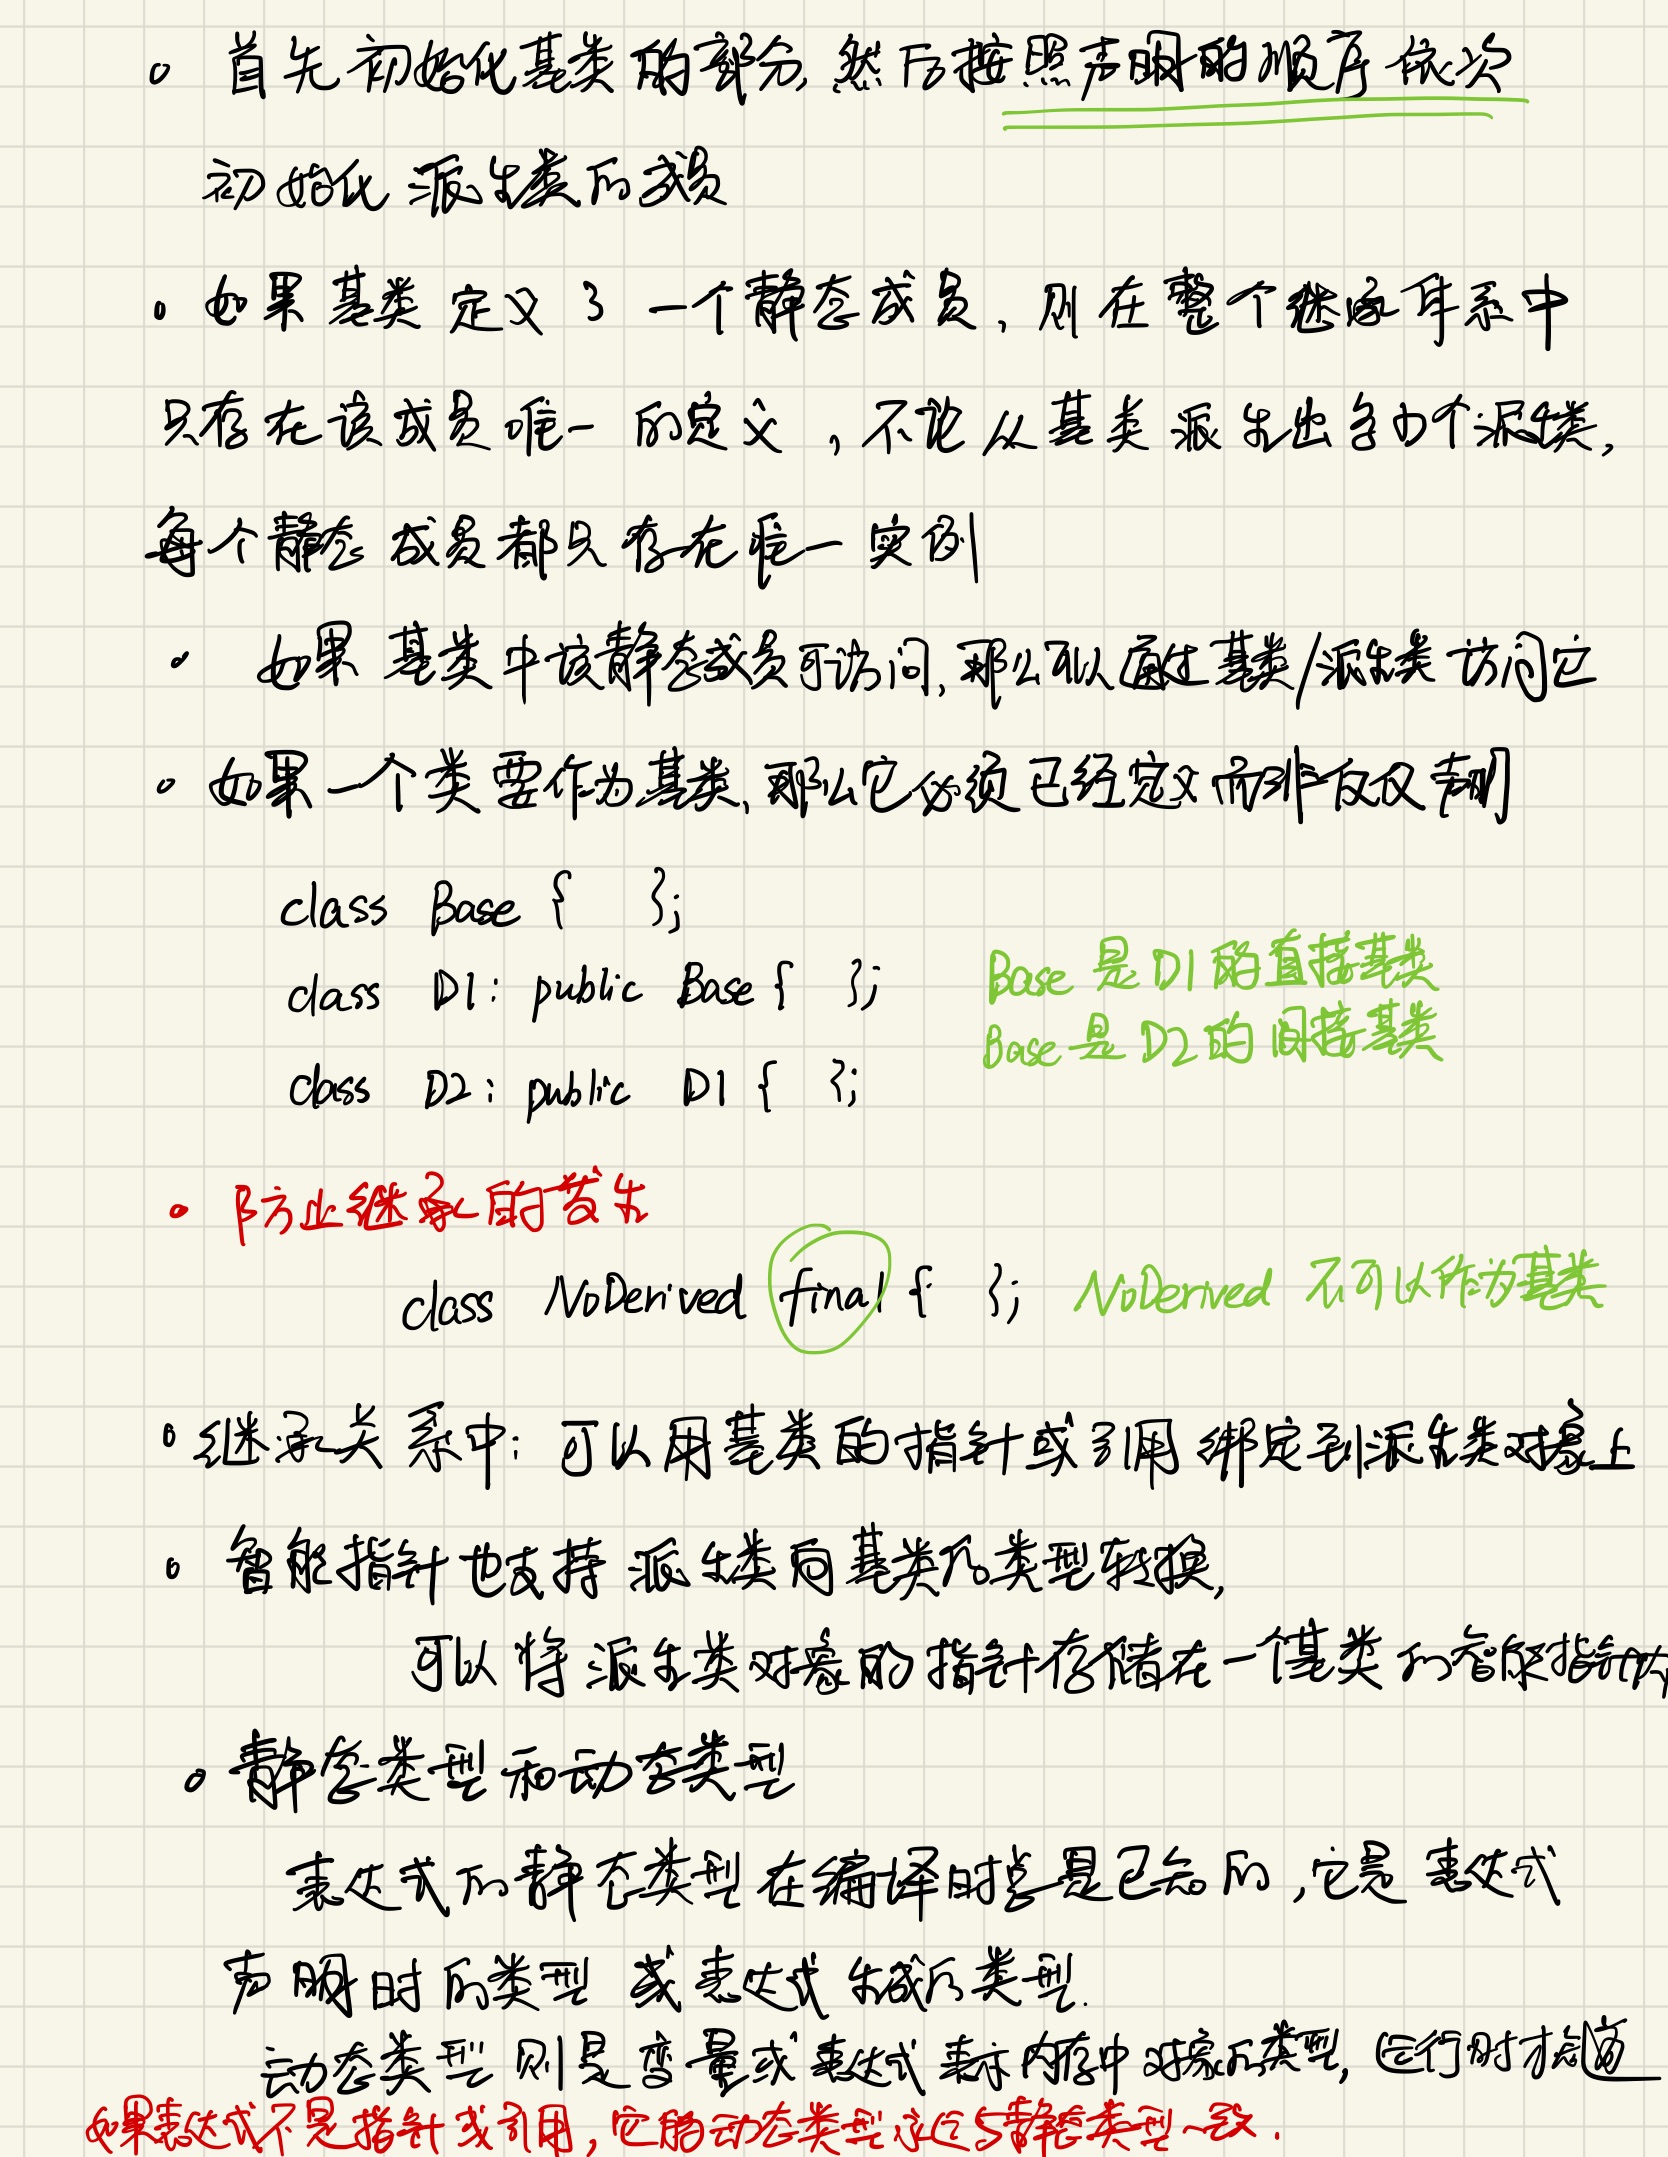 。首先初始化基类的部分,然后按照声明的顺序依次
初始化派生类的成员
。如果基类定义了一个静态成员,则在整个继承体系中
只存在该成员唯一的定义,不论从基类派生出多少个派生类,
每个静态成员都只存在唯一实例
· 如果基类中该静态成员可访问,那么可以通过基类/派生类访问它
。如果一个类要作为基类,那么它必须已经定义而非仅仅声明
class Base { };
class D1: public Base { }; Base 是 D1 的直接基类
Base 是 D2 的间接基类
class D2: public D1 { };
· 防止继承的发生
class NoDerived final { }; NoDerived 不可以作为基类
。继承关系中: 可以用基类的指针或引用绑定到派生类对象上
。智能指针也支持派生类向基类的类型转换,
可以将派生类对象的指针存储在一个基类的智能指针内
。静态类型和动态类型
表达式的静态类型在编译时总是已知的,它是表达式
声明时的类型或表达式生成的类型.
动态类型则是变量或表达式表示内存中对象的类型,运行时才知道
如果表达式不是指针或引用,它的动态类型永远与静态类型一致.